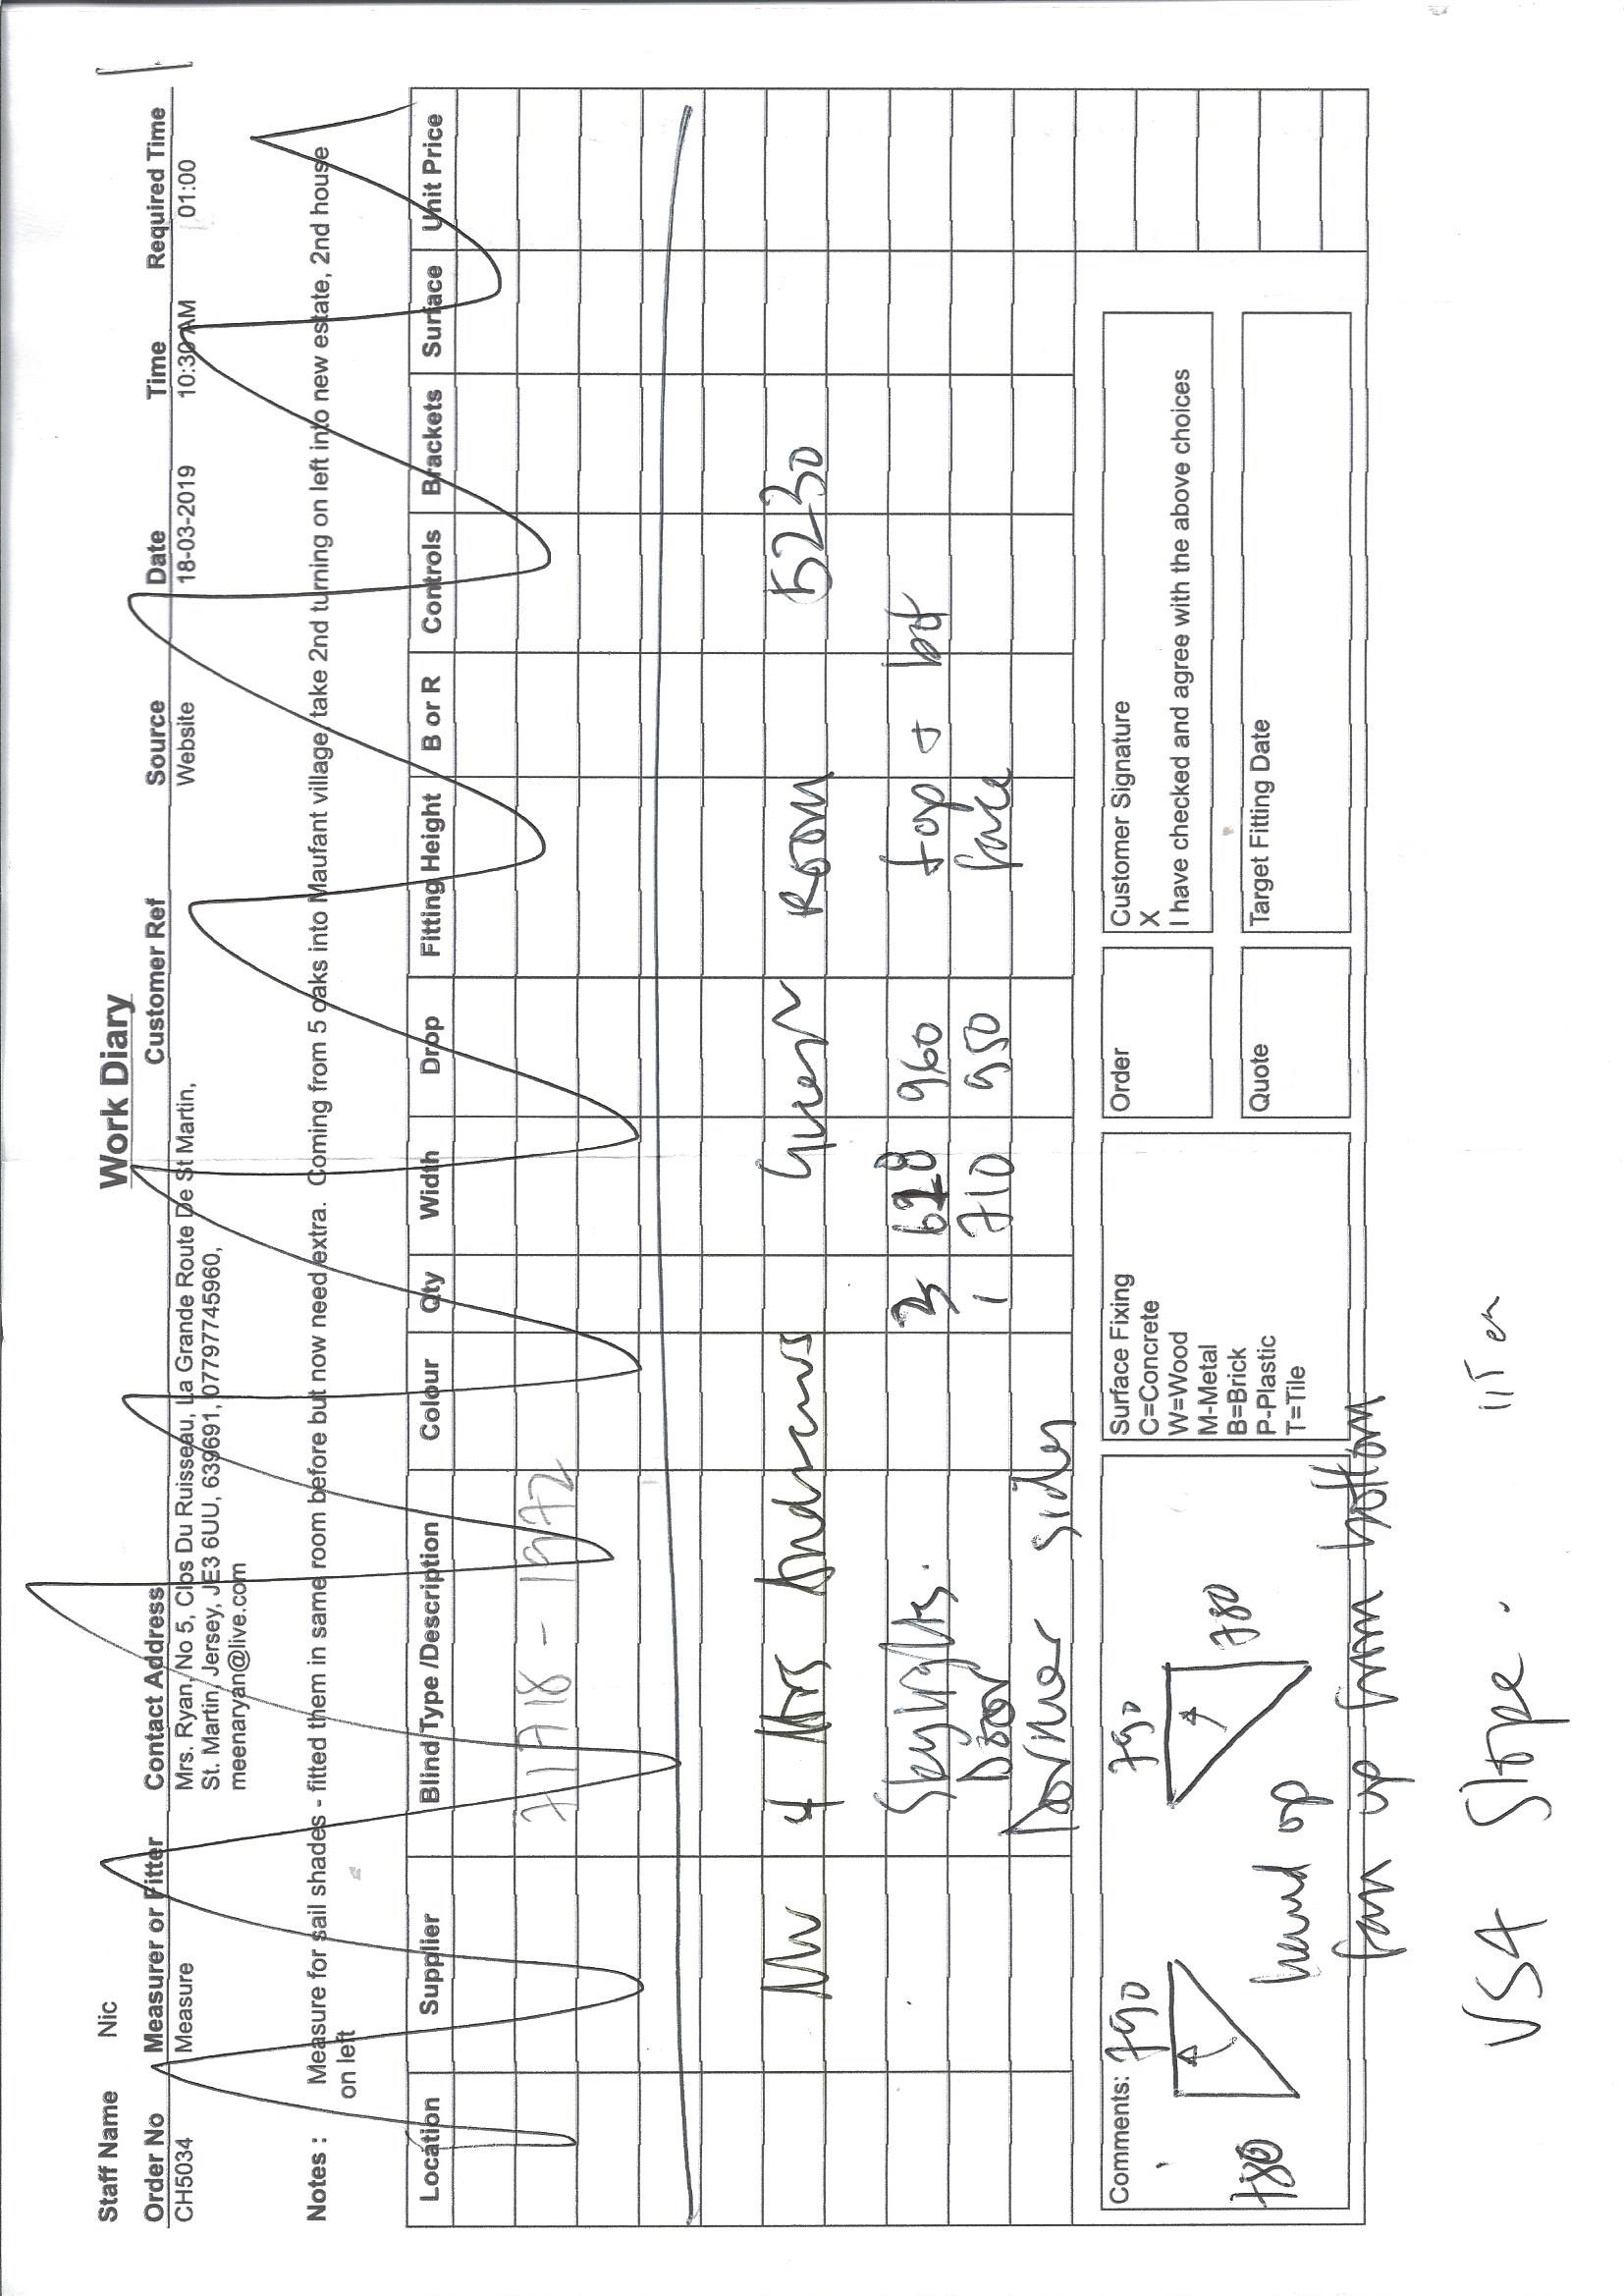 Work Diary
Staff Name Nic
Order No Measurer or Fitter Contact Address Customer Ref Source Date Time Required Time
CH5034 Measure Mrs. Ryan, No 5, Clos Du Ruisseau, La Grande Route De St Martin, Website 18-03-2019 10:30 AM 01:00
St. Martin, Jersey, JE3 6UU, 639691, 07797745960,
meenaryan@live.com
Notes : Measure for sail shades - fitted them in same room before but now need extra. Coming from 5 oaks into Maufant village take 2nd turning on left into new estate, 2nd house
on left
Location Supplier Blind Type /Description Colour Qty Width Drop Fitting Height B or R Controls Brackets Surface Unit Price
71718 - 1972
4 Mrs Andrews Green Room 5230
Skylights. 3 618 960 top + bot
Door 1 710 950 face
Dormer sides
Comments:
790 790
780 780
hand up
fan up from bottom
Surface Fixing
C=Concrete
W=Wood
M-Metal
B=Brick
P-Plastic
T=Tile
Order
Quote
Customer Signature
X
I have checked and agree with the above choices
Target Fitting Date
VS4 Slope.